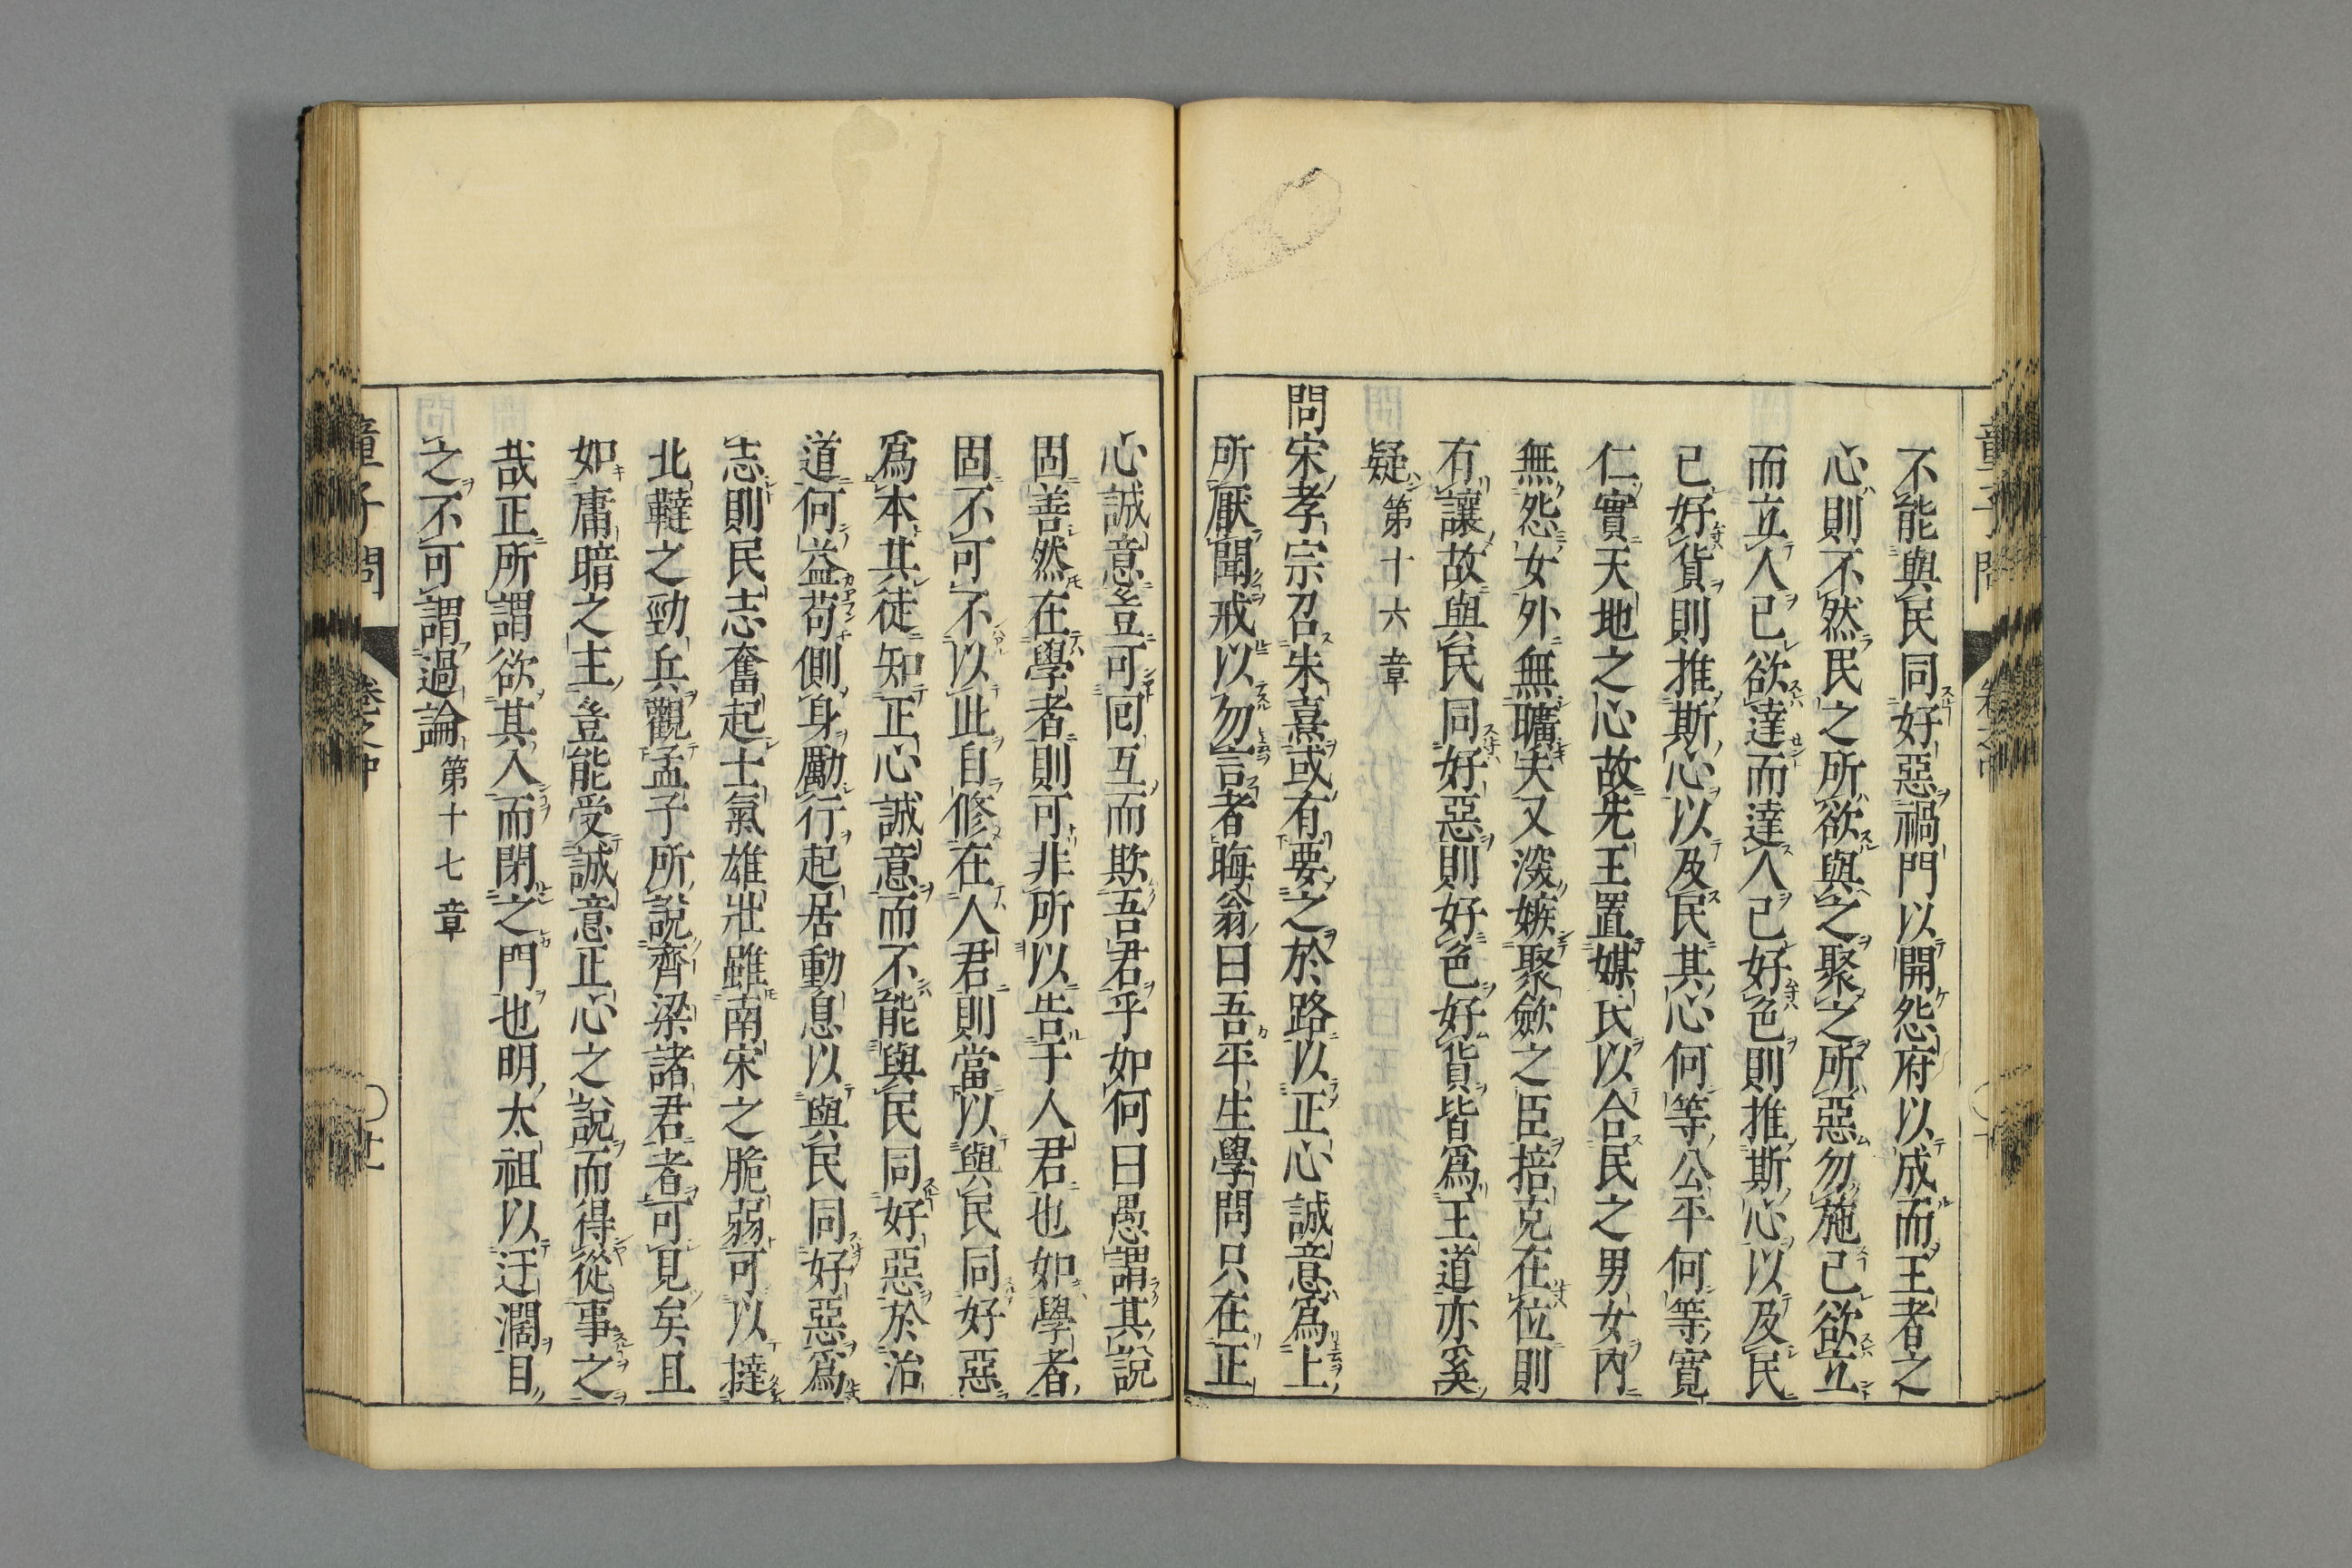 不能與民同好惡禍門以開怨府以成而王者之
心則不然民之所欲與之聚之所惡勿施己欲立
而立人己欲達而達人己好色則推斯心以及民
己好貨則推斯心以及民其心何等公平何等寬
仁實天地之心故先王置媒氏以合民之男女內
無怨女外無曠夫又深嫉聚斂之臣掊克在位則
有讓故與民同好惡則好色好貨皆爲王道亦奚
疑第十六章
問宋孝宗召朱熹或有要之於路以正心誠意爲上
所厭聞戒以勿言者晦翁曰吾平生學問只在正
心誠意豈可囘互而欺吾君乎如何曰愚謂其說
固善然在學者則可非所以告于人君也如學者
固不可不以此自修在人君則當以與民同好惡
爲本其徒知正心誠意而不能與民同好惡於治
道何益苟側身勵行起居動息以與民同好惡爲
志則民志奮起士氣雄壯雖南宋之脆弱可以撻
北韃之勁兵觀孟子所說齊梁諸君者可見矣且
如庸暗之主豈能受誠意正心之說而得從事之
哉正所謂欲其入而閉之門也明太祖以迂濶目
之不可謂過論第十七章
童子問 卷之中 〇廿